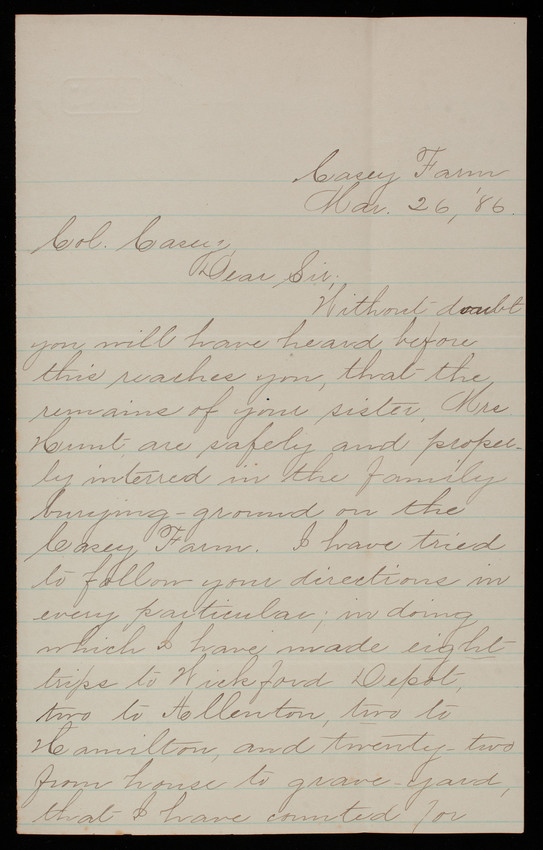 Casey Farm
Mar. 26, '86.
Col. Casey,
Dear Sir;
Without doubt
you will have heard before
this reaches you, that the
remains of your sister, Mrs
Hunt are safely and proper-
ly interred in the family
burying-ground on the
Casey Farm. I have tried
to follow your directions in
every particular; in doing
which I have made eight
trips to Wickford Depot,
two to Allenton, two to
Hamilton, and twenty-two
from house to grave-yard,
that I have counted for